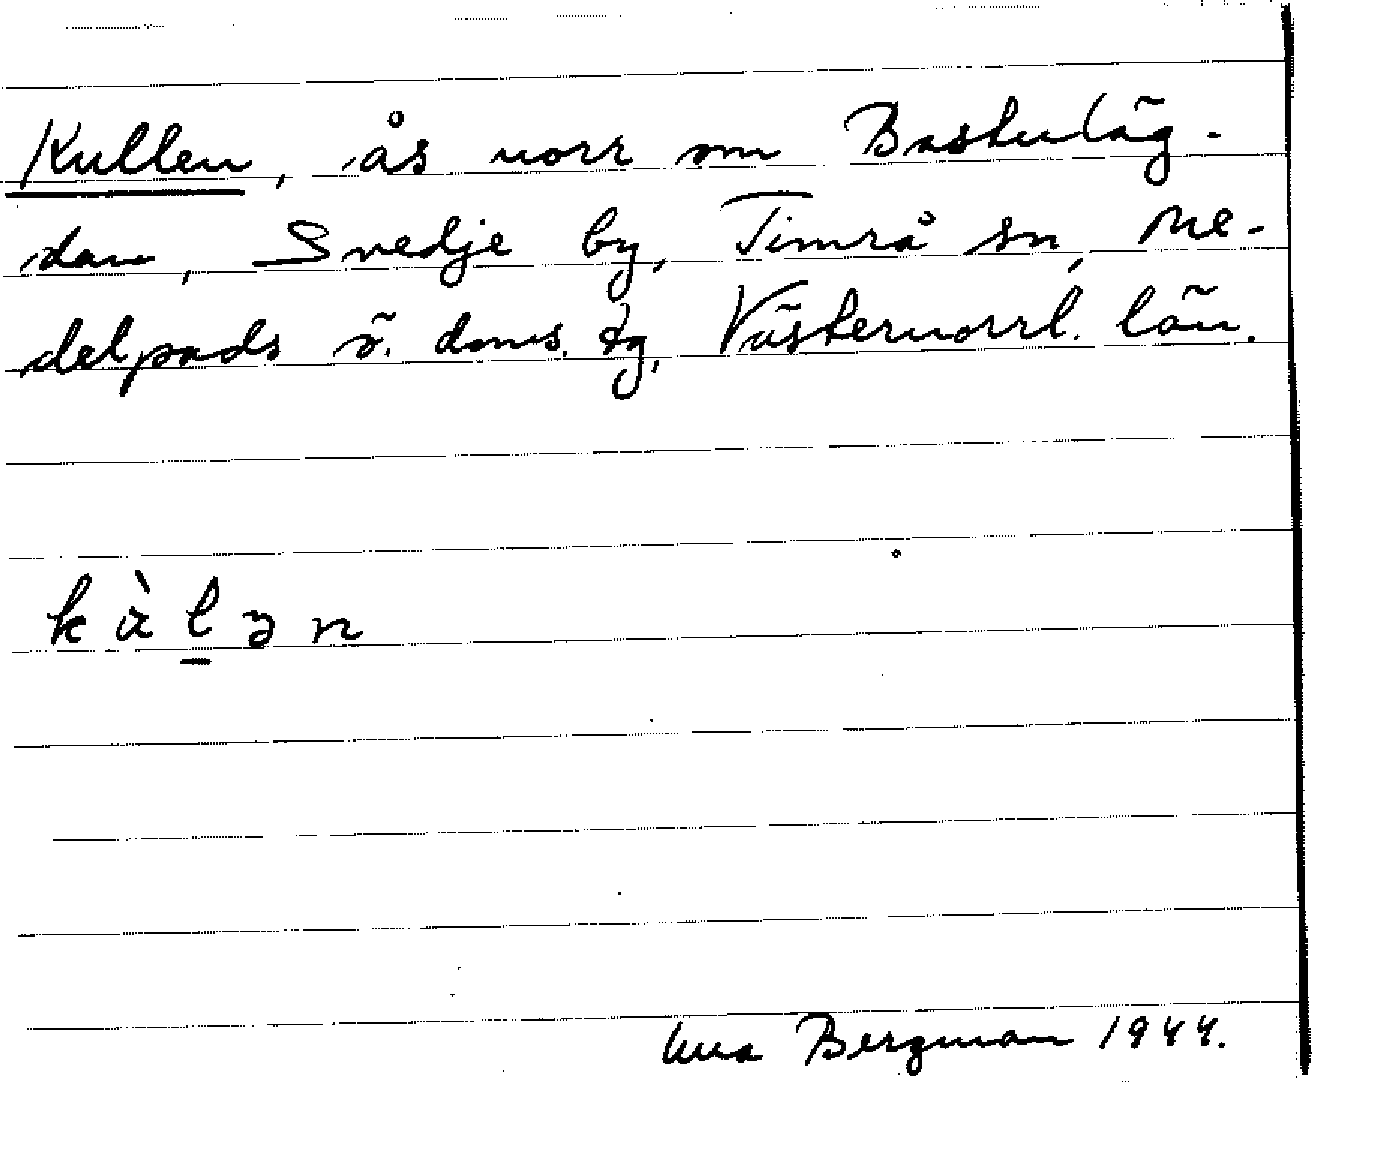 Kullen, ås norr om Bastuläg-
dan, Snedje by, Timrå sn, Me-
delpads ö. doms. tg, Västernorrl. län.
kàlən
Bergman 1944.